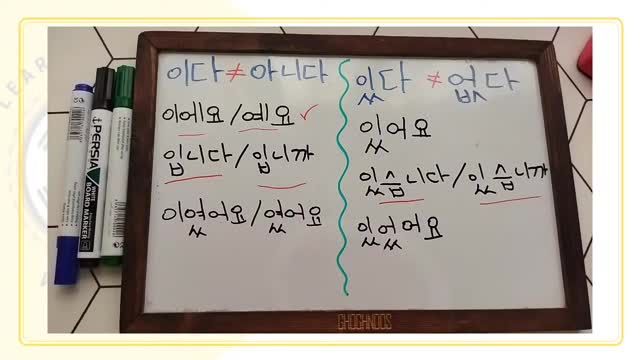 이다 ≠ 아니다
이에요 / 예요 ✓
입니다 / 입니까
이었어요 / 였어요
있다 ≠ 없다
있어요
있습니다 / 있습니까
있었어요
PERSIA
WHITE
BOARD MARKER
GHOGHNOOS
LEAR